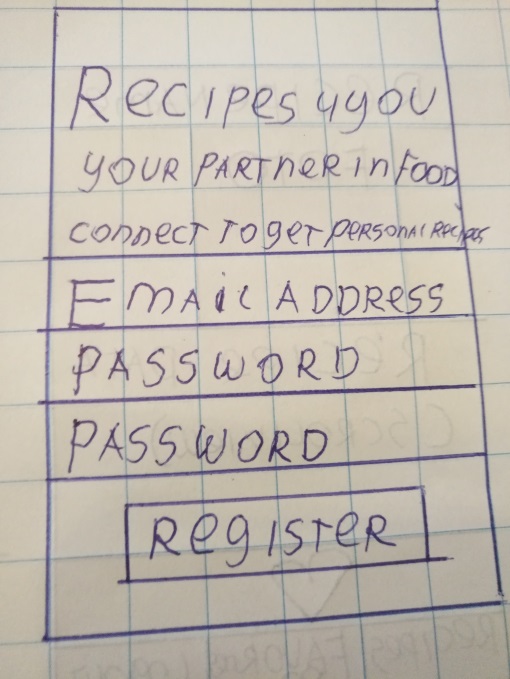 Recipes 4you
YOUR PARTNER In FOOD
connect To get personal Recipes
Email ADDRess
PASSWORD
PASSWORD
RegisTeR